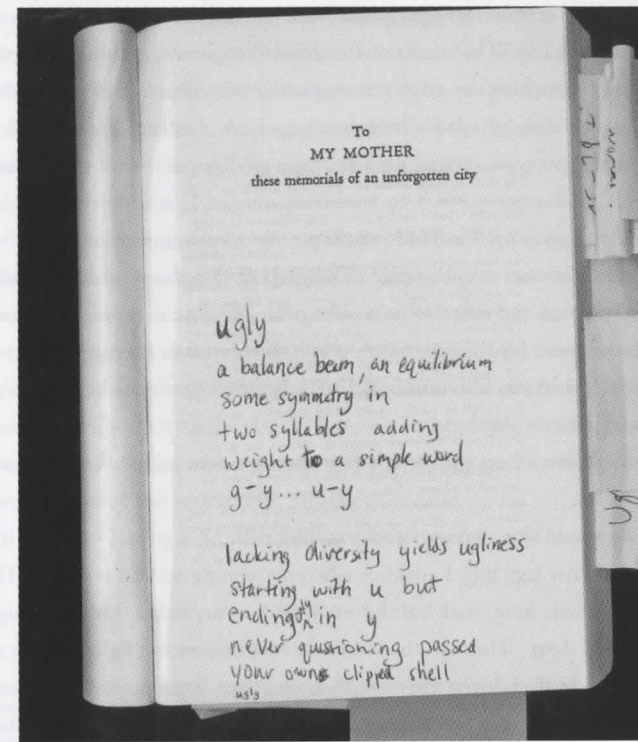 To
MY MOTHER
these memorials of an unforgotten city
ugly
a balance beam, an equilibrium
some symmetry in
two syllables adding
weight to a simple word
g-y... u-y
lacking diversity yields ugliness
starting with u but
ending in y
never qushioning passed
your own clipped shell
ugly